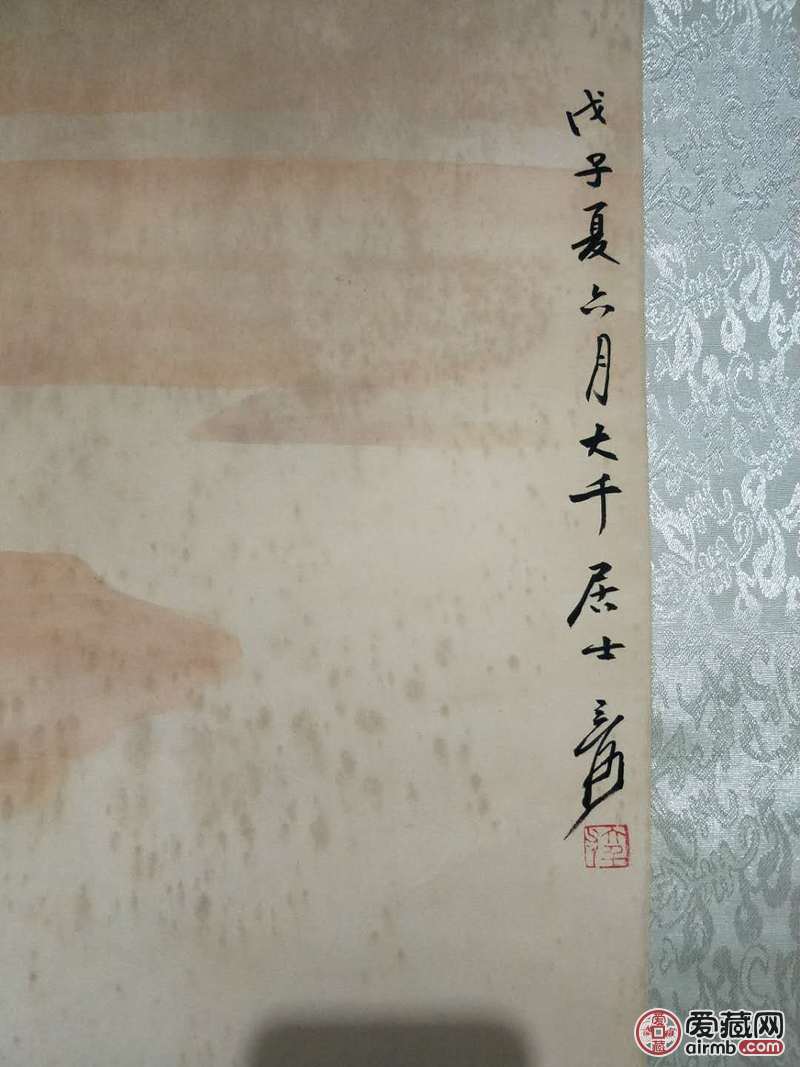 戊子夏六月大千居士爰
爱藏网
airmb.com